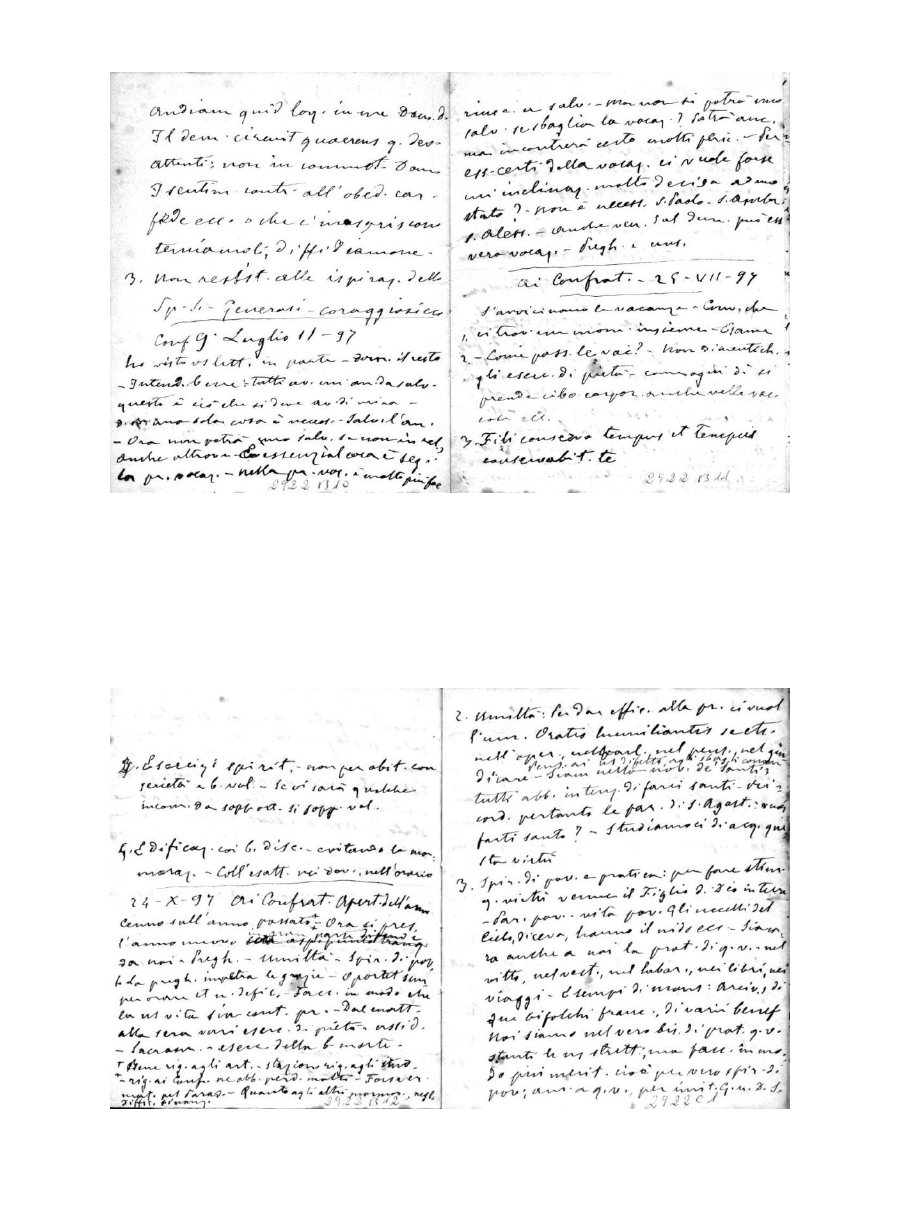 Audiam quid loq. in me Dom. d.
Il dem. circuit quaerens q. dev.
Attenti: non in commot. Dom.
I sentim. contr. all'obed. car.
fede ecc. o che c'inaspriscono
temiamoli, diffidiamone.
3. Non resist. alle ispiraz. dello
Sp. S. - Generosi - coraggiosi ecc
Conf G. Luglio 11-97
ho visto vs lett. in parte - il resto
- Intend. bene: tutti av. un an. da salv.
questo è ciò che si deve av. di mira -
sola cosa è necess. - Salv. l'an.
- Ora non potrà uno salv. se non in rel,
anche altrove - essenzial cosa è seg.
la pr. vocaz. - nella pr. voc. è molto più fac
2922 B10
riusc. a salv. - Ma non si potrà uno
salv. se sbaglia la vocaz? Potrà anc.
ma incontrerà certo molti peric. - Per
ess. certi della vocaz. ci vuole forse
un'inclinaz. molto decisa ad uno
stato? Non è necess. S. Paolo - S.
S. Aless. - anche ven. dal dem. può ess
vera vocaz. - Pregh. e
Ai Confrat. - 25-VII-97
S'avvicinano le vacanze - Conv. che
1, ci trov. un mom. insieme - Esame
2 - Come pass. le vac? - Non dimentich.
gli eserc. di pietà - come ogni dì si
prende cibo corpor. anche nelle vac
così ecc.
3. Fili conserva tempus et tempus
conservabit te
2922 B11
4. Esercizi spirit. - non per abit. con
serietà e b. vol. - Se vi sarà qualche
incom. da sopport. si sopp. vol.
5. Edificaz. coi b. disc. - evitando la mor-
moraz. - Coll'esatt. nei dov., nell'orario
24-X-97 Ai Confrat. Apert. dell'anno
Cenno sull'anno passato+ - Ora si pres.
l'anno nuovo gran parte dipende
da noi - Pregh. - Umiltà - Spir. di pov,
1. La pregh. impetra le grazie - Oportet sem
per orare et n. defic. - Facc. in modo che
la ns vita sia cont. pr. - Dal matt.
alla sera varii eserc. di pietà - assid.
- Sacram. - eserc. della b. morte -
+ Bene rig. agli art. - stazion. rig. agli stud.
- rig. ai Conf. ne abb. perd. molti - Forse er.
mat. pel Parad. - Quanto agli altri
2922 B12
2. Umiltà: Per dar effic. alla pr. ci vuol
l'um. Oratio humiliantis se etc.
nell'oper., nel parl., nel pens., nel giu-
dicare - Siam nella nov. de' Santi;
tutti abb. intenz. di farci santi - Ri-
cord. pertanto le par. di S. Agost.: vuoi
farti santo? - Studiamoci di acq. que
sta virtù
3. Spir. di pov. e pratica: per fare stim.
q. virtù venne il Figlio d. Dio in terra
- Par. pov. - vita pov. Gli uccelli del
Cielo, diceva, hanno il nido ecc - Siaca-
ra anche a noi la prat. di q. v. - nel
vitto, nel vest., nel labor., nei libri, nei
viaggi - Esempi di mons: Arciv., di
due bifolchi franc., di varii benef
Noi siamo nel vero bis. di prat. q. v.
stante le ns strett; ma facc. in mo-
do più merit. cioè per vero spir. di
pov; am. a q. v., per imit. G. n. d. S.
2922 C1